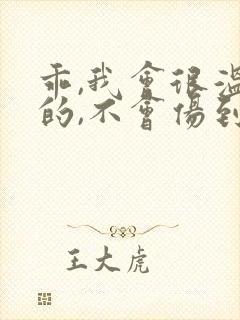 乖,我會很溫
的,不會傷到
王大虎